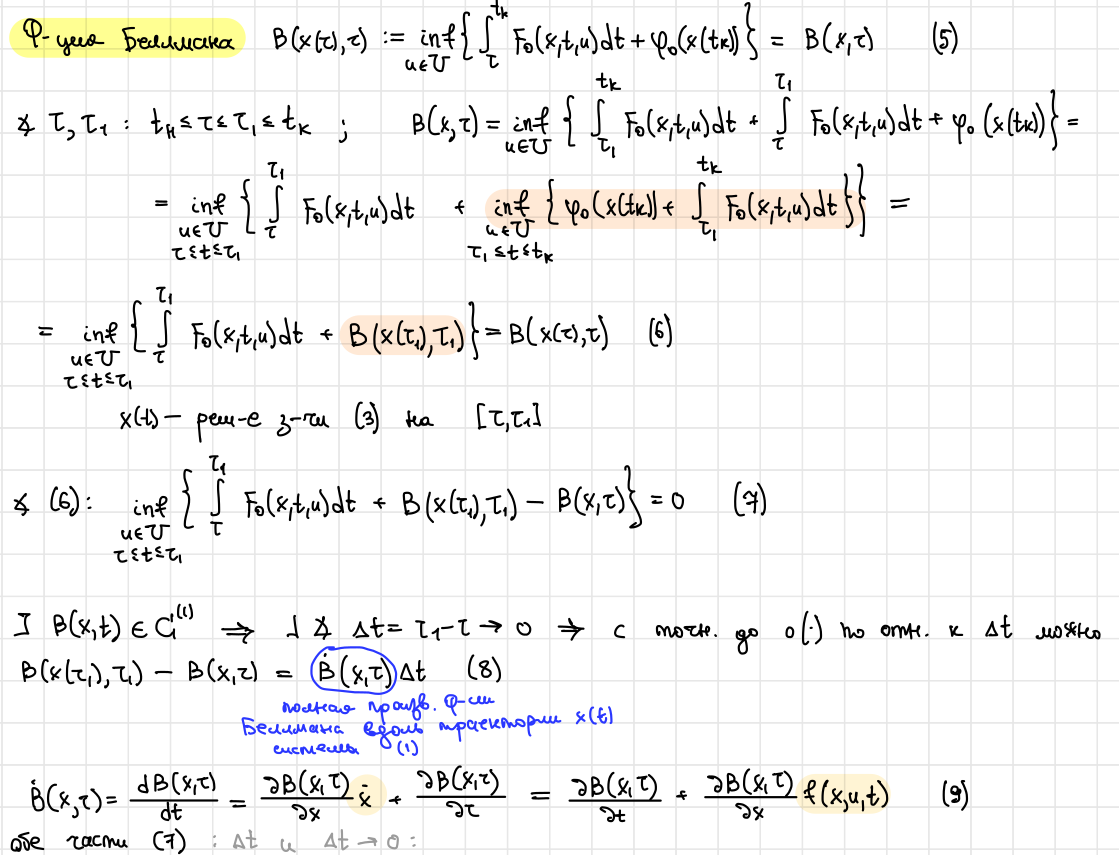 Ф-ция Беллмана B(x(τ),τ) := inf_{u∈U} { ∫_τ^{tк} F₀(x,t,u)dt + φ₀(x(tк)) } = B(x,τ) (5)
∡ τ, τ₁ : tн ≤ τ ≤ τ₁ ≤ tк ; B(x,τ) = inf_{u∈U} { ∫_{τ₁}^{tк} F₀(x,t,u)dt + ∫_τ^{τ₁} F₀(x,t,u)dt + φ₀(x(tк)) } =
= inf_{u∈U, τ≤t≤τ₁} { ∫_τ^{τ₁} F₀(x,t,u)dt + inf_{u∈U, τ₁≤t≤tк} { φ₀(x(tк)) + ∫_{τ₁}^{tк} F₀(x,t,u)dt } } =
= inf_{u∈U, τ≤t≤τ₁} { ∫_τ^{τ₁} F₀(x,t,u)dt + B(x(τ₁),τ₁) } = B(x(τ),τ) (6)
x(t) – реш-е з-чи (3) на [τ,τ₁]
∡ (6): inf_{u∈U, τ≤t≤τ₁} { ∫_τ^{τ₁} F₀(x,t,u)dt + B(x(τ₁),τ₁) – B(x,τ) } = 0 (7)
B(x,t) ∈ C^{(1)} ⇒ ∡ Δt = τ₁-τ → 0 ⇒ с точн. до o(·) по отн. к Δt можно
B(x(τ₁),τ₁) – B(x,τ) = Ḃ(x,τ) Δt (8)
полная произв. ф-ции
Беллмана вдоль траектории x(t)
системы (1)
Ḃ(x,τ) = dB(x,τ)/dt = ∂B(x,τ)/∂x ẋ + ∂B(x,τ)/∂τ = ∂B(x,τ)/∂t + ∂B(x,τ)/∂x f(x,u,t) (9)
обе части (7) : Δt и Δt → 0 :